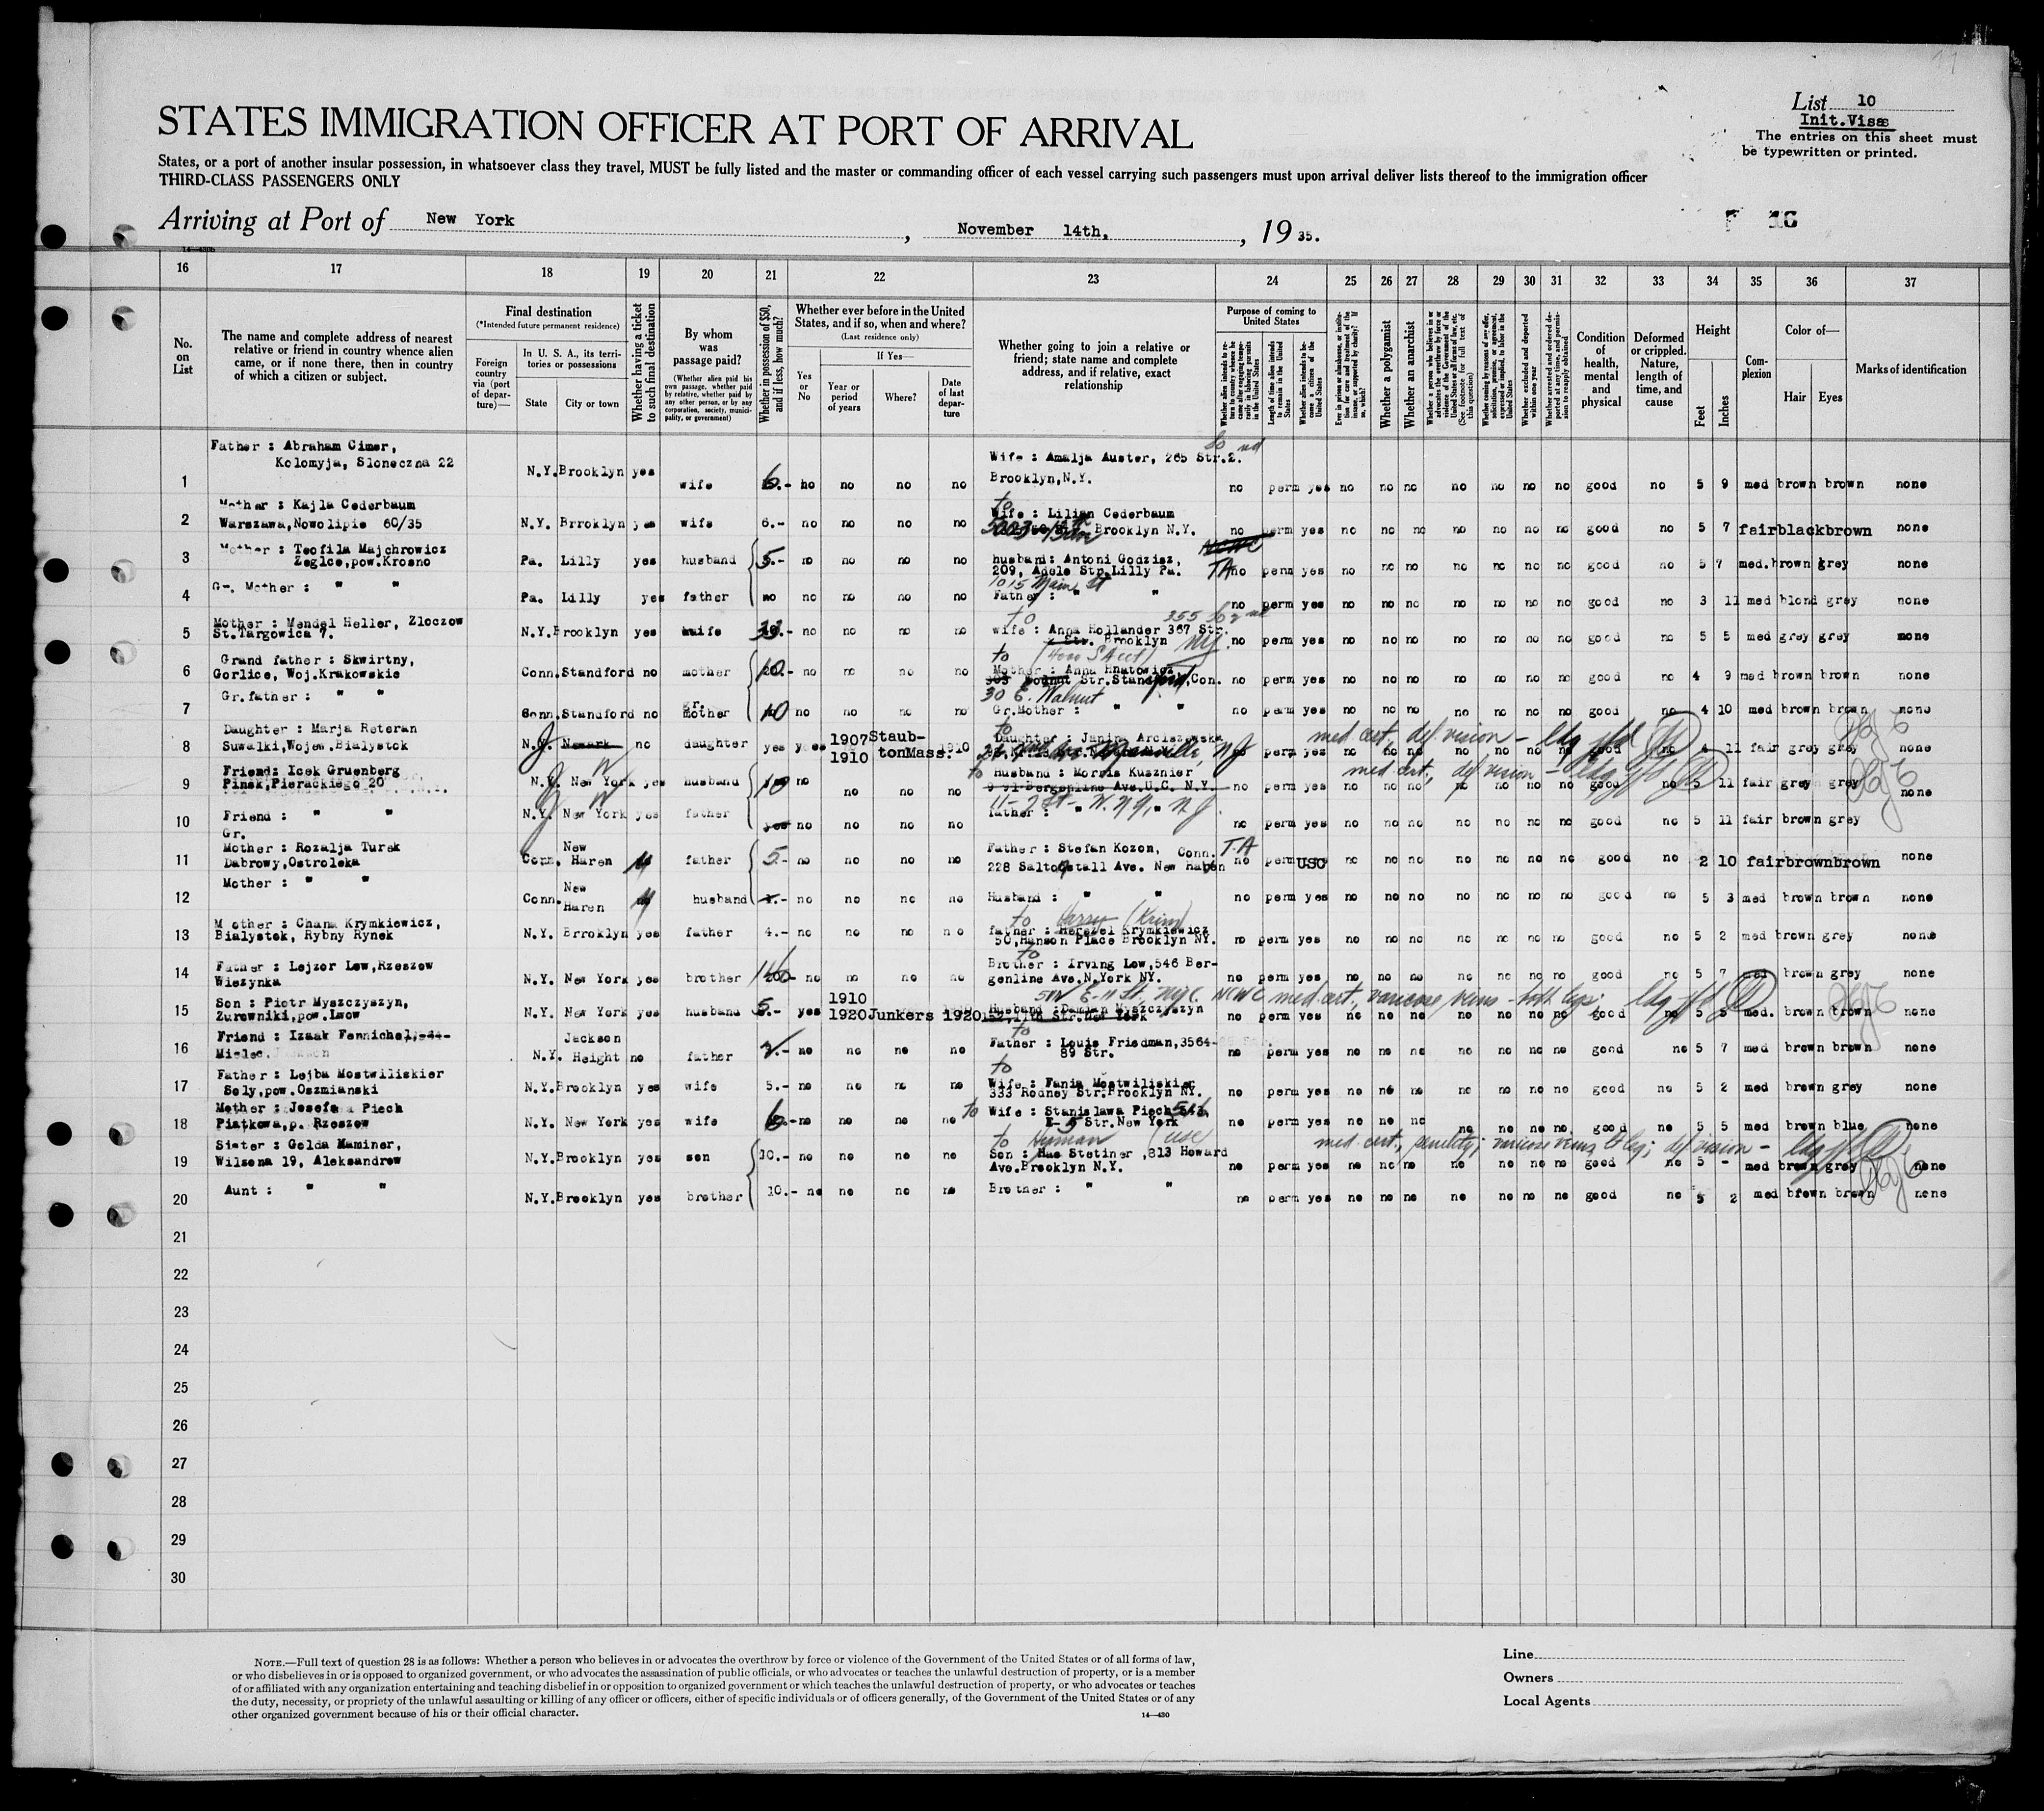 List 10
Init.Visæ
The entries on this sheet must
be typewritten or printed.
STATES IMMIGRATION OFFICER AT PORT OF ARRIVAL
States, or a port of another insular possession, in whatsoever class they travel, MUST be fully listed and the master or commanding officer of each vessel carrying such passengers must upon arrival deliver lists thereof to the immigration officer
THIRD-CLASS PASSENGERS ONLY
Arriving at Port of New York, November 14th, 1935.
10
14—430b
16 17 18 19 20 21 22 23 24 25 26 27 28 29 30 31 32 33 34 35 36 37
No. on List
The name and complete address of nearest relative or friend in country whence alien came, or if none there, then in country of which a citizen or subject.
Final destination
(*Intended future permanent residence)
Foreign country via (port of departure)—
In U. S. A., its territories or possessions
State
City or town
Whether having a ticket to such final destination
By whom was passage paid?
(Whether alien paid his own passage, whether paid by relative, whether paid by any other person, or by any corporation, society, municipality, or government)
Whether in possession of $50, and if less, how much?
Whether ever before in the United States, and if so, when and where?
(Last residence only)
Yes or No
If Yes—
Year or period of years
Where?
Date of last departure
Whether going to join a relative or friend; state name and complete address, and if relative, exact relationship
Purpose of coming to United States
Whether alien intends to return to country whence he came after engaging temporarily in laboring pursuits in the United States
Length of time alien intends to remain in the United States
Whether alien intends to become a citizen of the United States
Ever in prison or almshouse, or institution for care and treatment of the insane, or supported by charity? If so, which?
Whether a polygamist
Whether an anarchist
Whether a person who believes in or advocates the overthrow by force or violence of the Government of the United States or all forms of law, etc. (See footnote for full text of this question)
Whether coming by reason of any offer, solicitation, promise, or agreement, expressed or implied, to labor in the United States
Whether excluded and deported within one year
Whether arrested and ordered deported at any time, and permission to reapply obtained
Condition of health, mental and physical
Deformed or crippled. Nature, length of time, and cause
Height
Feet
Inches
Complexion
Color of—
Hair
Eyes
Marks of identification
1 Father : Abraham Cimer, Kolomyja, Sloneczna 22 N.Y. Brooklyn yes wife 6.- no no no no Wife : Amalja Auster, 265 Str.2. Brooklyn,N.Y. no perm yes no no no no no no no good no 5 9 med brown brown none
2 Mother : Kajla Cederbaum Warszawa,Nowolipie 60/35 N.Y. Brrooklyn yes wife 6.- no no no no to Wife : Lilian Cederbaum Brooklyn N.Y. no perm yes no no no no no no no good no 5 7 fair black brown none
3 Mother : Teofila Majchrowicz Zeglce,pow.Krosno Pa. Lilly yes husband 5.- no no no no husband: Antoni Godzisz, 209, Adele Str. Lilly Pa. TA no perm yes no no no no no no no good no 5 7 med. brown grey none
4 Gr. Mother : " " Pa. Lilly yes father no no no no no 1015 Main St Father : " " no perm yes no no no no no no no good no 3 11 med blond grey none
5 Mother : Mendel Heller, Zloczow St.Targowica 7. N.Y. Brooklyn yes wife no no no no to wife : Anna Hollander 367 Str. Brooklyn NY. no perm yes no no no no no no no good no 5 5 med grey grey none
6 Grand father : Skwirtny, Gorlice, Woj.Krakowskie Conn. Standford no mother 10.- no no no no to Mother : Anna Hnatowicz Str. Con. no perm yes no no no no no no no good no 4 9 med brown brown none
7 Gr.father : " " Conn. Standford no gr. mother 10 no no no no 30 E. Walnut Gr.Mother : " " no perm yes no no no no no no no good no 4 10 med brown brown none
8 Daughter : Marja Reteran Suwalki,Wojew.Bialystok N.J. Newark no daughter yes yes 1907 1910 Staubton Mass. 1910 to Daughter : Janina Arciszewska N J no perm yes no no no no no no no good no 4 11 fair grey grey none
med cert, def vision —
9 Friend: Icek Gruenberg Pinsk,Pierackiego 20 N.Y. New York yes husband 10 no no no no to husband : Morris Kusznier Bergenline Ave.U.C. N.Y. no perm yes no no no no no no no good no 5 11 fair grey grey none
med cert, def vision —
10 Friend : " " N.Y. New York yes father yes no no no no father : " " no perm yes no no no no no no no good no 5 11 fair brown grey
11 Gr. Mother : Rozalja Turek Dabrowy,Ostroleka Conn. New Haren father 5.- no no no no Father : Stefan Kozon, Conn. 228 Saltonstall Ave. New Haben TA no perm USC no no no no no no no good no 2 10 fair brown brown none
12 Mother : " " Conn. New Haren husband no no no no Husband : " " no perm yes no no no no no no no good no 5 3 med brown brown none
13 Mother : Chana Krymkiewicz, Bialystek, Rybny Rynek N.Y. Brrooklyn yes father 4.- no no no no to Harry (Krim) father : Herszel Krymkiewicz 50,Hanson Place Brooklyn NY. no perm yes no no no no no no no good no 5 2 med brown grey none
14 Father : Lejzor Low,Rzeszow Wiezynka N.Y. New York yes brother no no no no to Brother : Irving Low,546 Bergenline Ave.N.York NY. no perm yes no no no no no no no good no 5 7 med brown grey none
15 Son : Piotr Myszczyszyn, Zurowniki,pow.Lwow N.Y. New York yes husband 5.- yes 1910 1920 Junkers 1920 E-11 St, NYC. Husband :Damian Myszczyszyn 11th Str.New York no perm yes no no no no no no no good no 5 5 med. brown brown none
NCWC med cert, varicose veins — both legs;
16 Friend : Izaak Fennichel, Mielec. N.Y. Jackson Height no father no no no no to Father : Louis Friedman,3564- 89 Str. no perm yes no no no no no no no good no 5 7 med brown brown none
17 Father : Lejba Mostwiliskier Soly,pow.Oszmianski N.Y. Brooklyn yes wife 5.- no no no no to Wife : Fania Mostwiliskier 333 Rodney Str.Brooklyn NY. no perm yes no no no no no no no good no 5 2 med brown grey none
18 Mother : Josefa Piech Piatkowa,p. Rzeszow N.Y. New York yes wife 6.- no no no no to Wife : Stanislawa Piech E- 5 Str.New York no perm yes no no no no no no no good no 5 5 med brown blue none
19 Sister : Golda Maminer, Wilsona 19, Aleksandrow N.Y. Brooklyn yes son 10.- no no no no to Hyman (USC) Son : Stetiner ,813 Howard Ave.Brooklyn N.Y. no perm yes no no no no no no no good no 5 - med brown grey none
med cert, senility; varicose veins, lt leg; def vision —
20 Aunt : " " N.Y. Brooklyn yes brother 10.- no no no no Brother : " " no perm yes no no no no no no no good no 5 2 med brown brown none
21
22
23
24
25
26
27
28
29
30
NOTE.—Full text of question 28 is as follows: Whether a person who believes in or advocates the overthrow by force or violence of the Government of the United States or of all forms of law,
or who disbelieves in or is opposed to organized government, or who advocates the assassination of public officials, or who advocates or teaches the unlawful destruction of property, or is a member
of or affiliated with any organization entertaining and teaching disbelief in or opposition to organized government or which teaches the unlawful destruction of property, or who advocates or teaches
the duty, necessity, or propriety of the unlawful assaulting or killing of any officer or officers, either of specific individuals or of officers generally, of the Government of the United States or of any
other organized government because of his or their official character.
14—430
Line
Owners
Local Agents